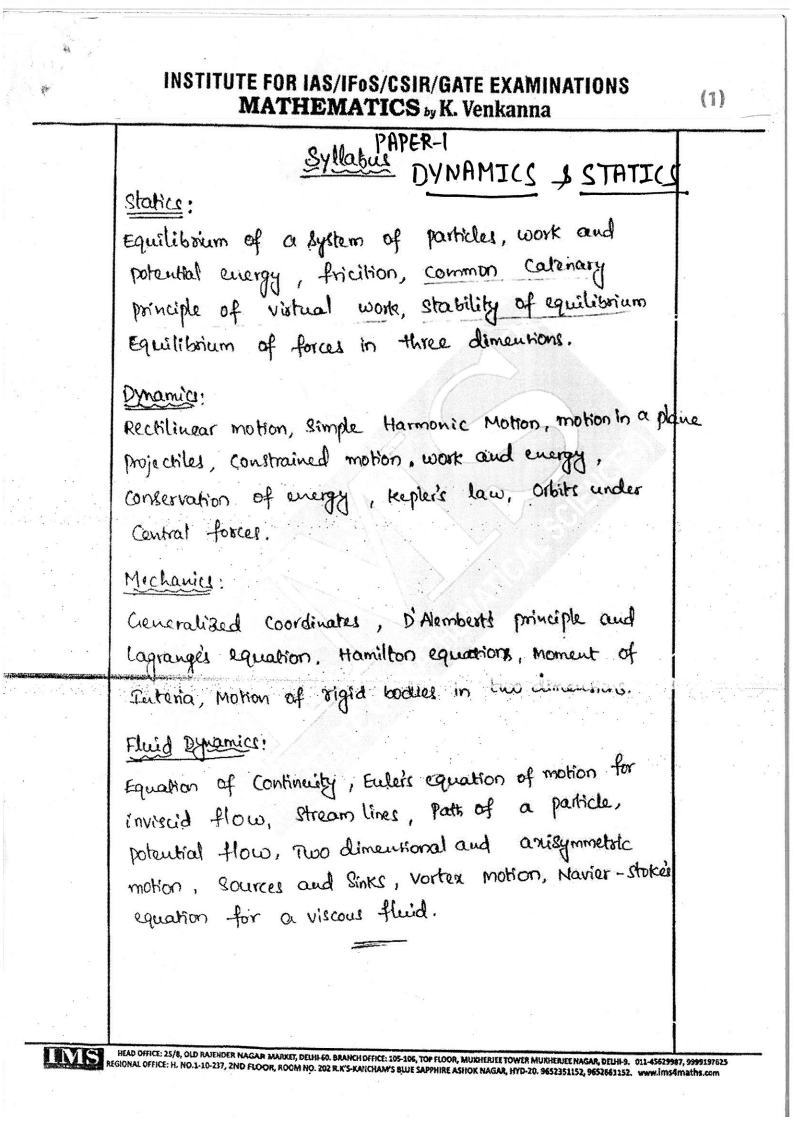 INSTITUTE FOR IAS/IFoS/CSIR/GATE EXAMINATIONS
MATHEMATICS by K. Venkanna
(1)
PAPER-I
Syllabus
DYNAMICS & STATICS
Statics:
Equilibrium of a system of particles, work and
potential energy, fricition, common catenary
principle of virtual work, stability of equilibrium
Equilibrium of forces in three dimentions.
Dynamics:
Rectilinear motion, Simple Harmonic Motion, motion in a plane
projectiles, constrained motion, work and energy,
conservation of energy, kepler's law, Orbits under
Central forces.
Mechanics:
Generalized Coordinates, D'Alembert's principle and
Lagrange's equation. Hamilton equations, Moment of
Interia, Motion of rigid bodies in two dimensions.
Fluid Dynamics:
Equation of Continuity, Euler's equation of motion for
inviscid flow, Stream lines, Path of a particle,
potential flow, Two dimentional and axisymmetric
motion, Sources and Sinks, Vortex motion, Navier-Stoke's
equation for a viscous fluid.
IMS
HEAD OFFICE: 25/8, OLD RAJENDER NAGAR MARKET, DELHI-60. BRANCH OFFICE: 105-106, TOP FLOOR, MUKHERJEE TOWER MUKHERJEE NAGAR, DELHI-9. 011-45629987, 9999197625
REGIONAL OFFICE: H. NO.1-10-237, 2ND FLOOR, ROOM NO. 202 R.K'S-KANCHAM'S BLUE SAPPHIRE ASHOK NAGAR, HYD-20. 9652351152, 9652661152. www.ims4maths.com